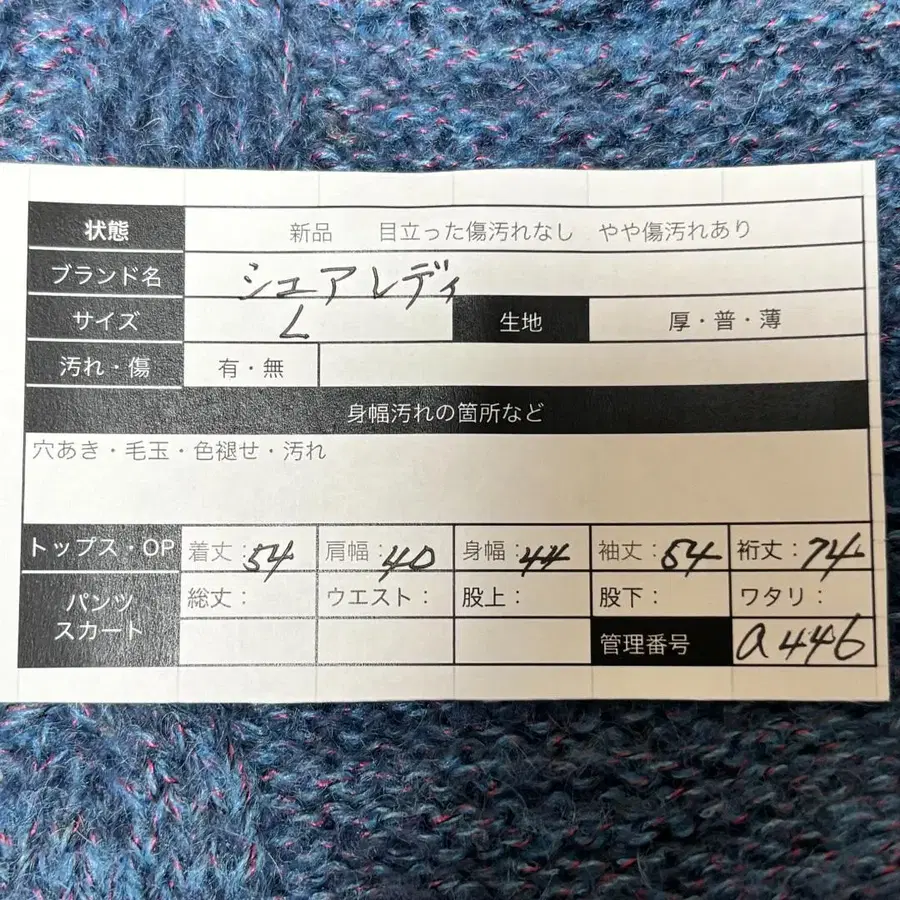 状態 新品 目立った傷汚れなし やや傷汚れあり
ブランド名 シュアレディ
サイズ L 生地 厚・普・薄
汚れ・傷 有・無
身幅汚れの箇所など
穴あき・毛玉・色褪せ・汚れ
トップス・OP 着丈:54 肩幅:40 身幅:44 袖丈:54 裄丈:74
パンツ スカート 総丈: ウエスト: 股上: 股下: ワタリ:
管理番号 a446